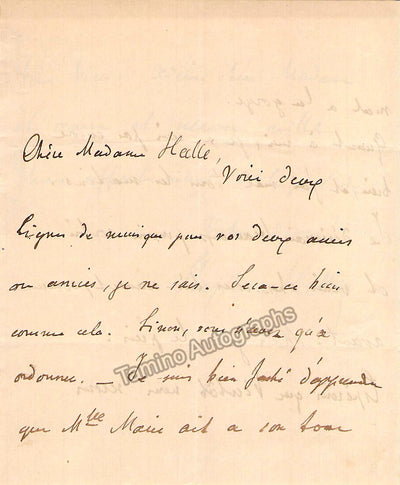 Chère Madame Hallé,
Voici deux
lignes de musique pour vos deux amies
ou amies, je ne sais. Sera-ce bien
comme cela. Sinon, vous n'avez qu'à
ordonner. — Je suis bien fâché d'apprendre
que Mlle Marie ait à son tour
Tamino Autographs